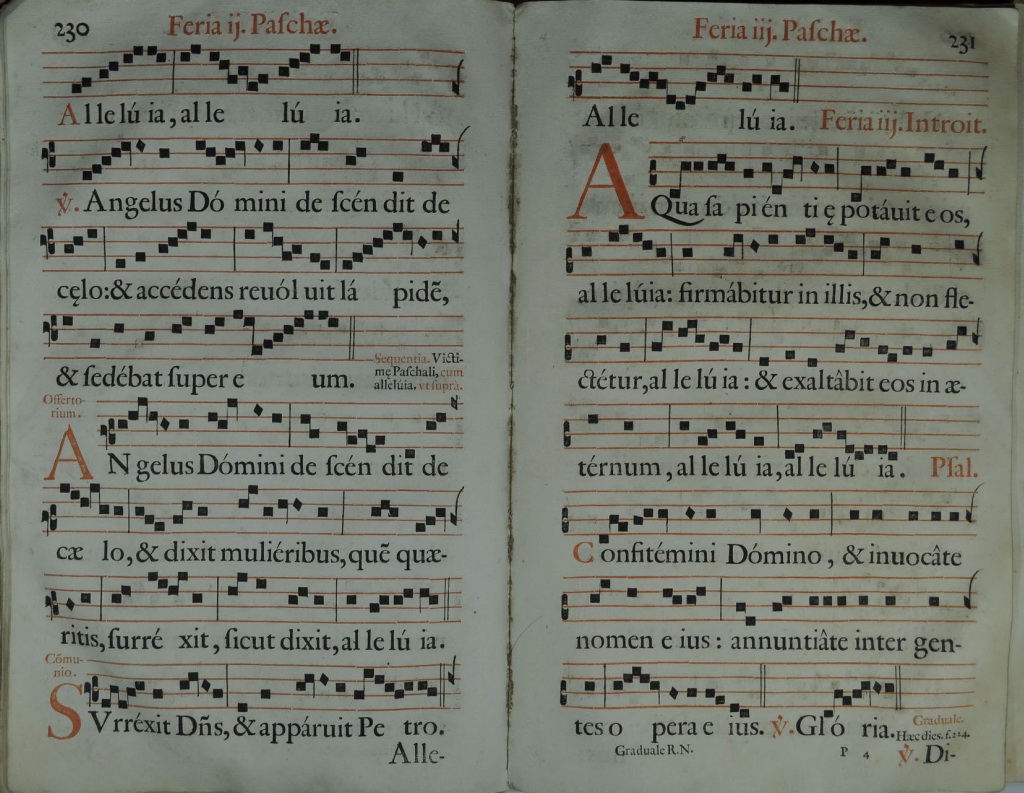 230
Feria ij. Paſchæ.
Al le lú ia, al le lú ia.
℣. Angelus Dó mini de ſcén dit de
cęlo:& accédens reuól uit lá pidē̃,
& ſedébat ſuper e um.
Sequentia. Victi-
mę Paſchali, cum
allelúia. vt ſupra.
Offerto-
rium.
AN gelus Dómini de ſcén dit de
cæ lo, & dixit muliéribus, quē̃ quæ-
ritis, ſurré xit, ſicut dixit, al le lú ia.
Cõmu-
nio.
SVrréxit Dñs, & appáruit Pe tro.
Alle-
Feria iij. Paſchæ.
231
Al le lú ia. Feria iij. Introit.
AQua ſa pi én ti ę potáuit e os,
al le lúia: firmábitur in illis, & non fle-
ctétur, al le lú ia: & exaltâbit eos in æ-
térnum, al le lú ia, al le lú ia. Pſal.
Confitémini Dómino, & inuocâte
nomen e ius: annuntiâte inter gen-
tes o pera e ius. ℣. Gló ria.
Graduale.
Hæc dies. f. 224.
Graduale R.N.
P 4
℣. Di-